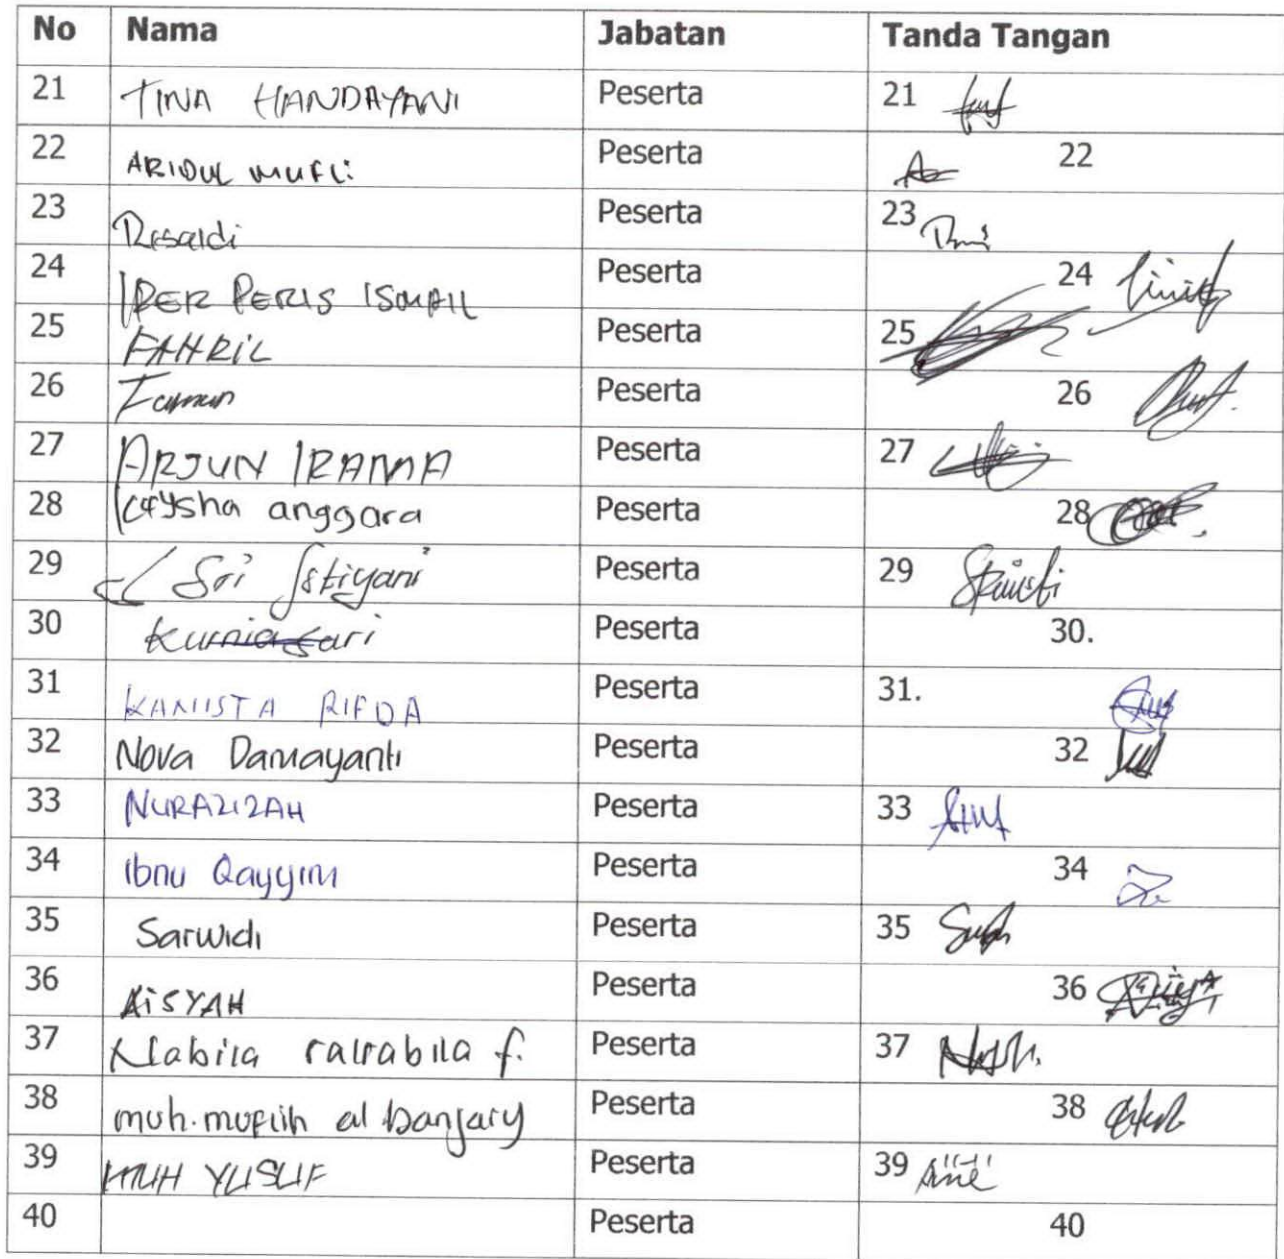 No Nama Jabatan Tanda Tangan
21 TINA HANDAYANI Peserta 21
22 ARIDUL MUFLi Peserta 22
23 Risaldi Peserta 23
24 IPER PERIS ISMAIL Peserta 24
25 FAHRIL Peserta 25
26 Peserta 26
27 ARJUN IRAMA Peserta 27
28 kaysha anggara Peserta 28
29 Sri Istiyani Peserta 29
30 Kurniasari Peserta 30.
31 KANISTA RIFDA Peserta 31.
32 Nova Damayanti Peserta 32
33 NURAZIZAH Peserta 33
34 Ibnu Qayyim Peserta 34
35 Sarwidi Peserta 35
36 AiSYAH Peserta 36
37 Nabila salsabila f. Peserta 37
38 muh. muflih al banjary Peserta 38
39 MUH YUSUF Peserta 39
40 Peserta 40